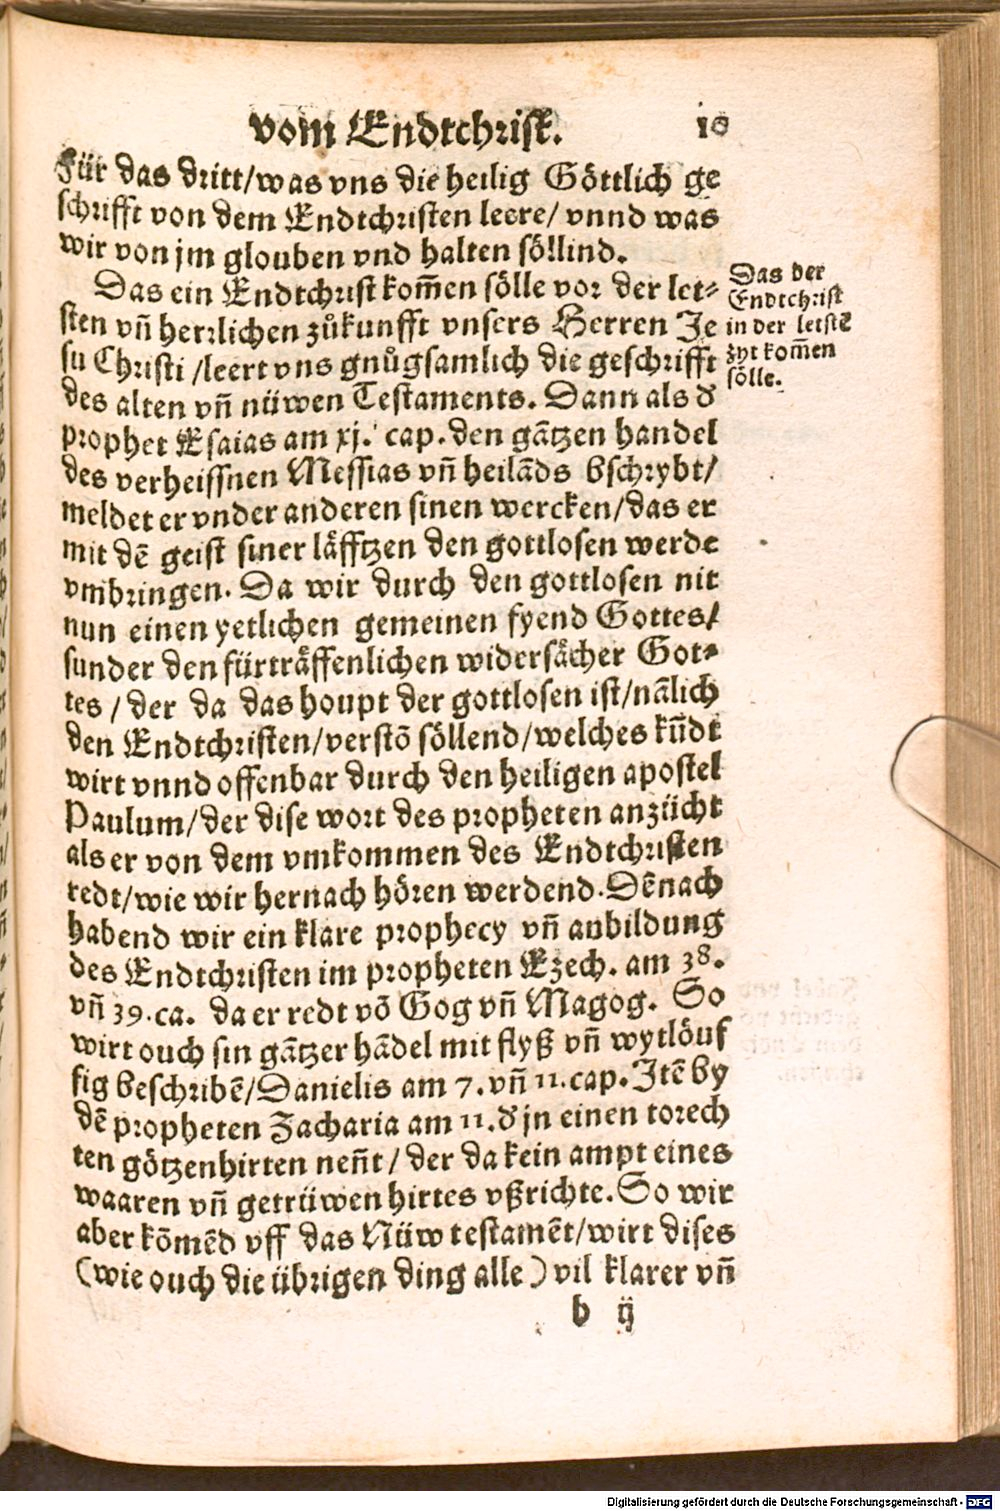 vom Endtchrist. 10
Für das dritt/was vns die heilig Göttlich ge
schrifft von dem Endtchristen leere/ vnnd was
wir von jm glouben vnd halten söllind.
Das ein Endtchrist kom̄en sölle vor der let⸗
sten vn̄ herrlichen zůkunfft vnsers Herren Je
su Christi /leert vns gnůgsamlich die geschrifft
des alten vn̄ nüwen Testaments. Dann als d̓
prophet Esaias am xj. cap. den gātzen handel
des verheissnen Messias vn̄ heilāds bschrybt/
meldet er vnder anderen sinen wercken/das er
mit dē geist siner läfftzen den gottlosen werde
vmbringen. Da wir durch den gottlosen nit
nun einen yetlichen gemeinen fyend Gottes/
sunder den fürträffenlichen widersächer Got⸗
tes / der da das houpt der gottlosen ist/nālich
den Endtchristen/verstō söllend/welches kūdt
wirt vnnd offenbar durch den heiligen apostel
Paulum/der dise wort des propheten anzücht
als er von dem vmkommen des Endtchristen
redt/wie wir hernach hören werdend. Dēnach
habend wir ein klare prophecy vn̄ anbildung
des Endtchristen im propheten Ezech. am 38.
vn̄ 39. ca. da er redt vō Gog vn̄ Magog. So
wirt ouch sin gātzer hādel mit flyß vn̄ wytlöuf
fig beschribē/Danielis am 7. vn̄ 11. cap. Jtē by
dē propheten Zacharia am 11. d̓ jn einen torech
ten götzenhirten nen̄t / der da kein ampt eines
waaren vn̄ getrüwen hirtes vßrichte. So wir
aber kōmēd vff das Nüw testamēt/wirt dises
(wie ouch die übrigen ding alle) vil klarer vn̄
b ij
Das der
Endtchrist
in der letstē
zyt kom̄en
sölle.
Digitalisierung gefördert durch die Deutsche Forschungsgemeinschaft - DFG